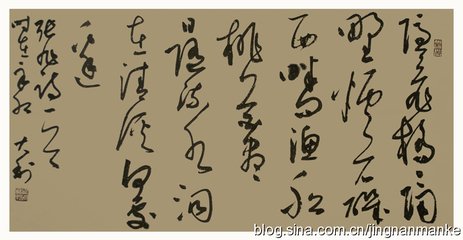 隐隐飞桥隔
野烟石矶
西畔问渔船
桃花尽日
随流水洞
在清溪何处
边
张旭诗一首
时在
blog.sina.com.cn/jingnanmanke